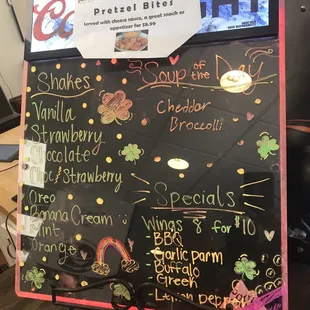 Pretzel Bites
Served with cheese sauce, a great snack or
appetizer for $8.99
Shakes
Vanilla
Strawberry
Chocolate
Choc/Strawberry
Oreo
Banana Cream
Mint
Orange
Soup of the Day
Cheddar
Broccoli
Specials
Wings 8 for $10
- BBQ
- Garlic parm
- Buffalo
- Green
- Lemon Pepper